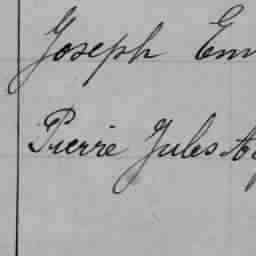 Joseph Em
Pierre Jules